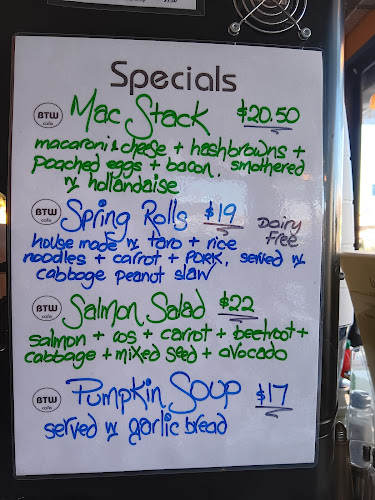 Specials
BTW cafe Mac Stack $20.50
macaroni & cheese + hashbrowns +
poached eggs + bacon, smothered
w hollandaise
BTW cafe Spring Rolls $19 Dairy Free
house made w taro + rice
noodles + carrot + PORK, served w
cabbage peanut slaw
BTW cafe Salmon Salad $22
salmon + cos + carrot + beetroot +
cabbage + mixed seed + avocado
BTW cafe Pumpkin Soup $17
served w garlic bread